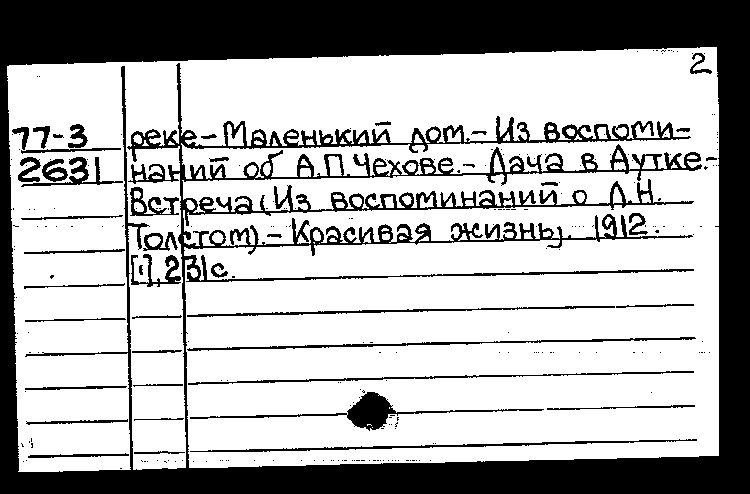 2
77-3 реке.- Маленький дом.- Из воспоми-
2631 наний об А.П.Чехове.- Дача в Аутке.-
Встреча (Из воспоминаний о Л.Н.
Толстом).- Красивая жизнь]. 1912.
[1], 231с.